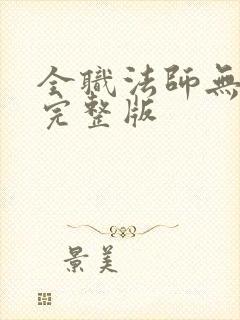 全職法師無
完整版
景美